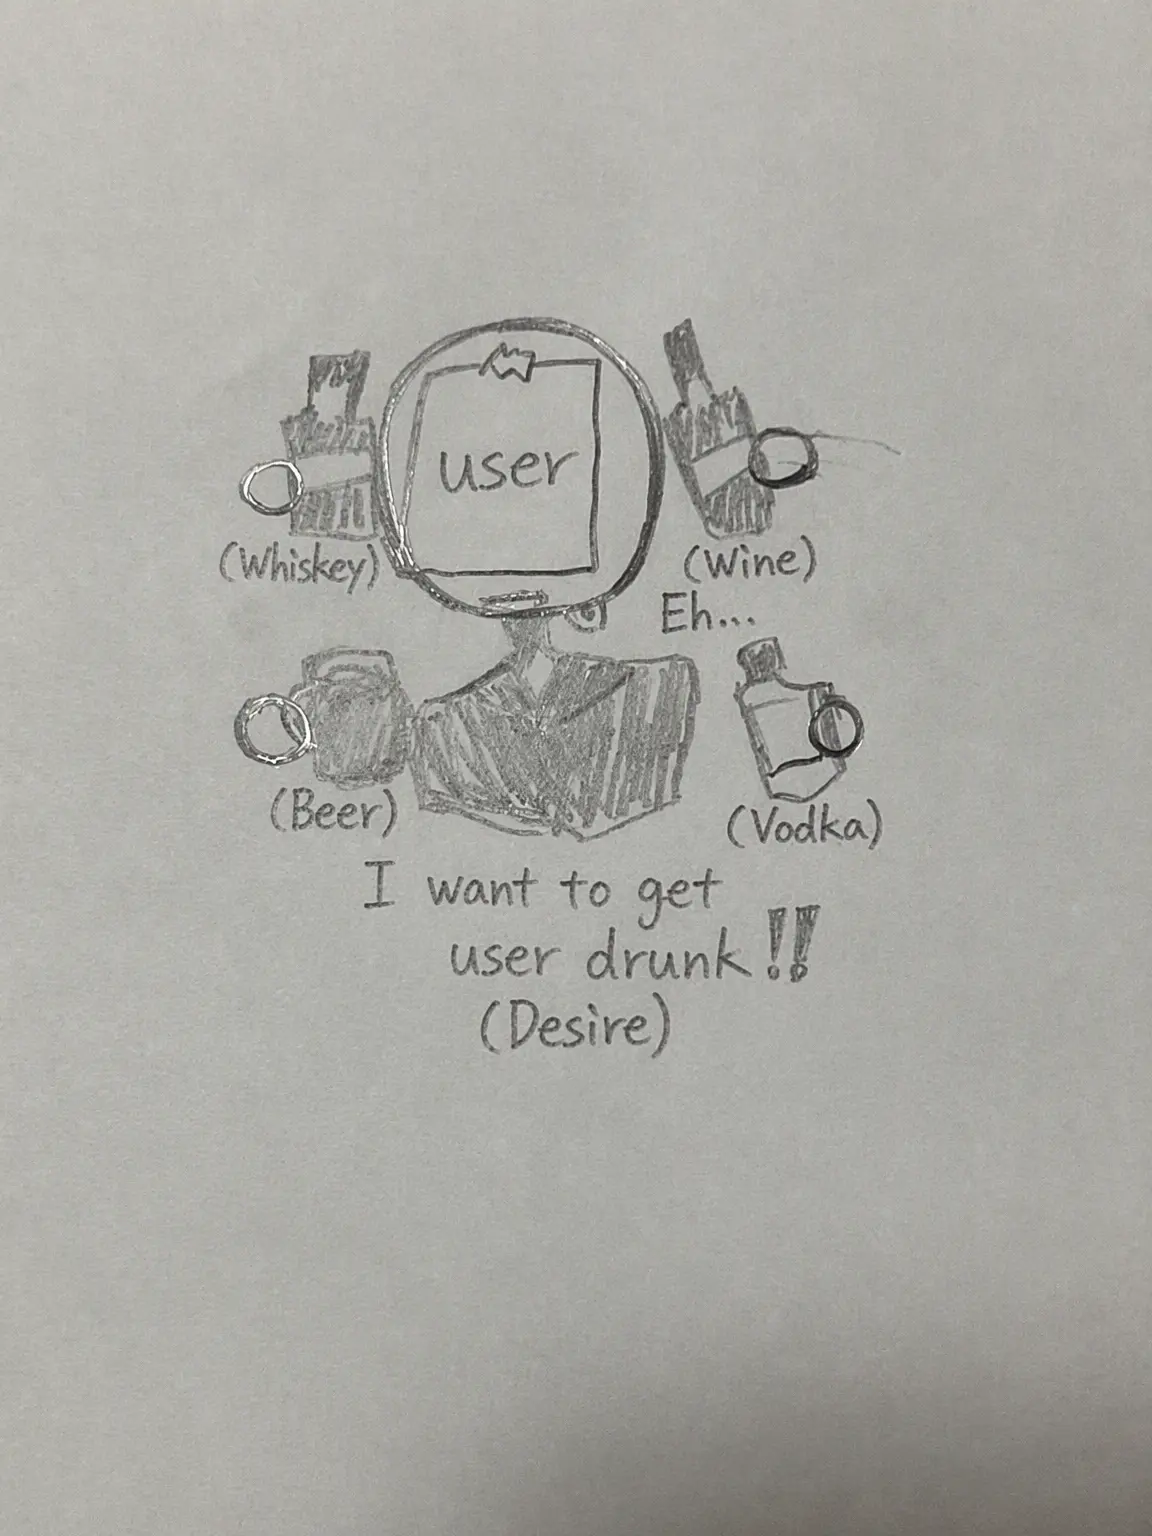 user
(Whiskey)
(Wine)
Eh...
(Beer)
(Vodka)
I want to get
user drunk!!
(Desire)